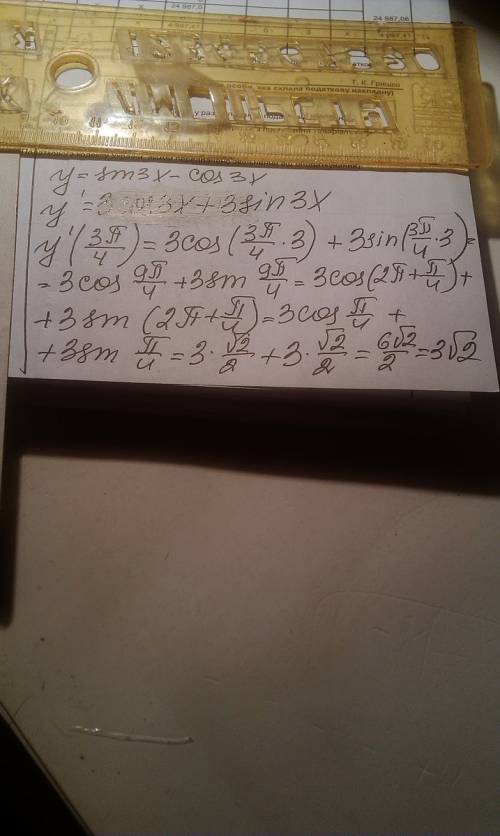 24 987,0
24 987,06
4 997,41
Т. К. Гришко
особи, яка склала податкову накладну)
y = sin3x - cos3x
y' = 3cos3x + 3sin3x
y'(3π/4) = 3cos(3π/4 · 3) + 3sin(3π/4 · 3) =
= 3cos 9π/4 + 3sin 9π/4 = 3cos(2π + π/4) +
+ 3sin (2π + π/4) = 3cos π/4 +
+ 3sin π/4 = 3 · √2/2 + 3 · √2/2 = 6√2/2 = 3√2